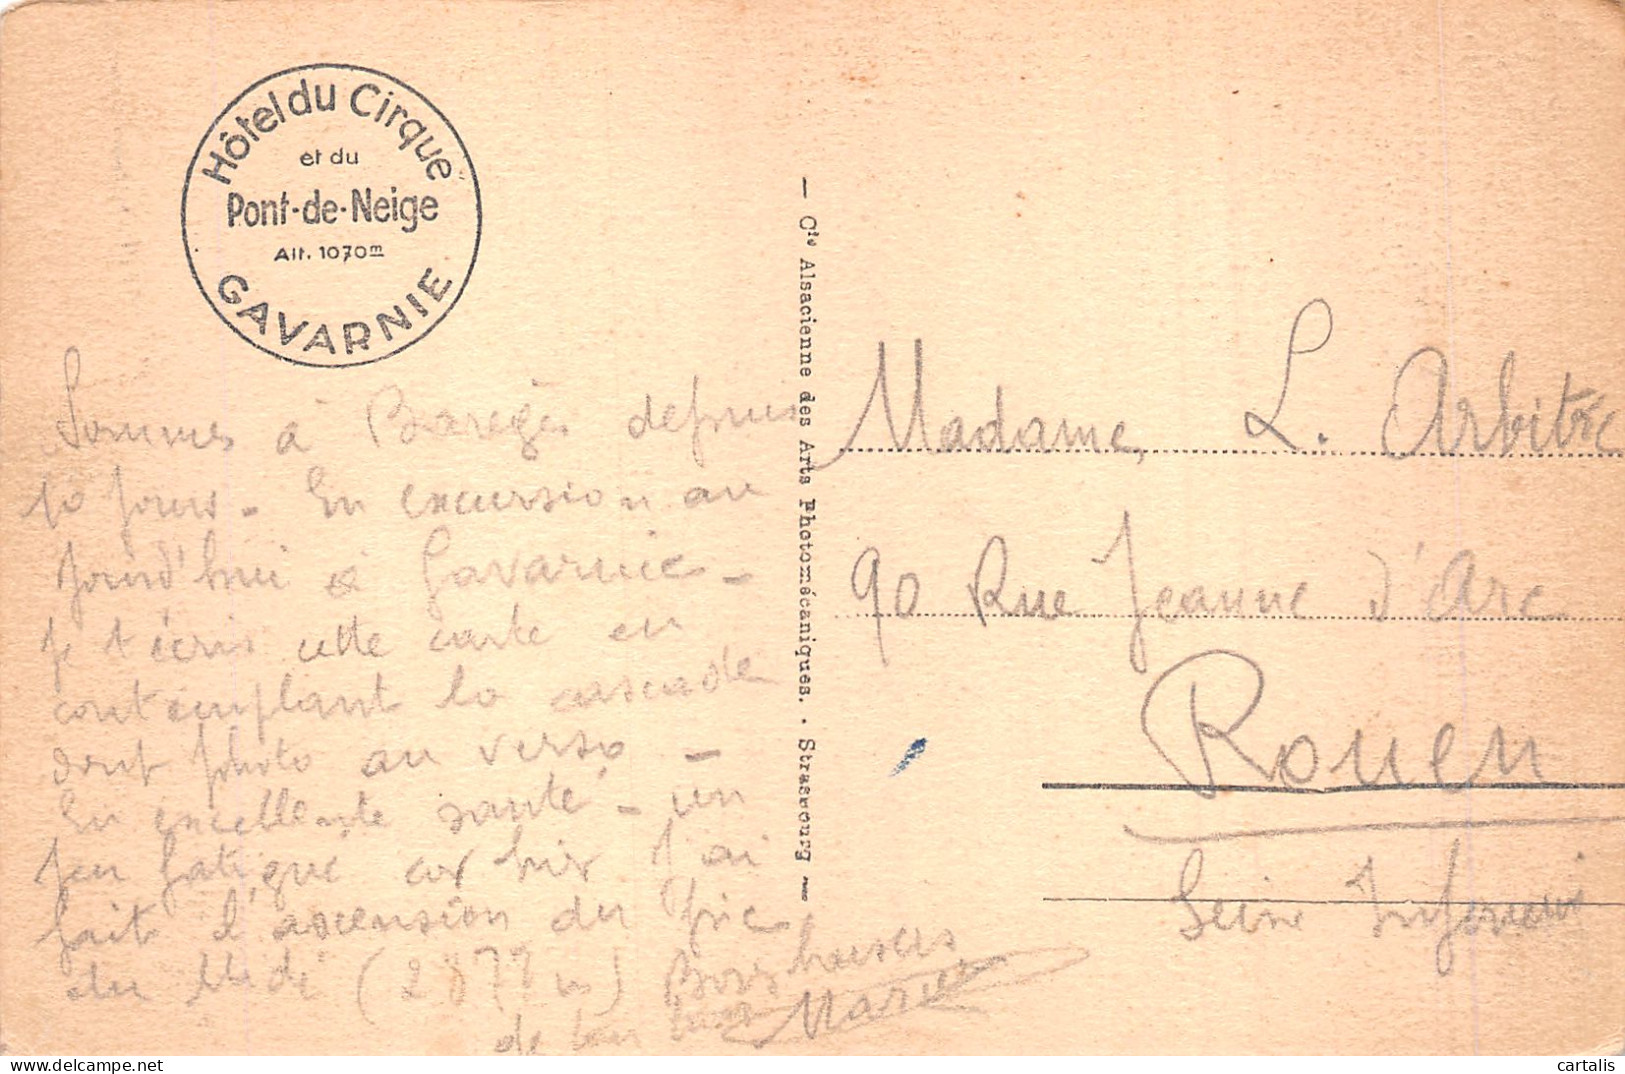 Hôtel du Cirque
et du
Pont-de-Neige
Alt. 1070m
GAVARNIE
Sommes à Barèges depuis
10 jours - En excursion au
jourd'hui à Gavarnie -
Je t'écris cette carte en
contemplant la cascade
dont photo au verso -
En excellente santé - un
peu fatigué car hier j'ai
fait l'ascension du Pic
du Midi (2877 m) Bons baisers
de ton
— Cie Alsacienne des Arts Photomécaniques. · Strasbourg —
Madame L. Arbitre
90 Rue Jeanne d'Arc
Rouen
Seine Inférieure
cartalis